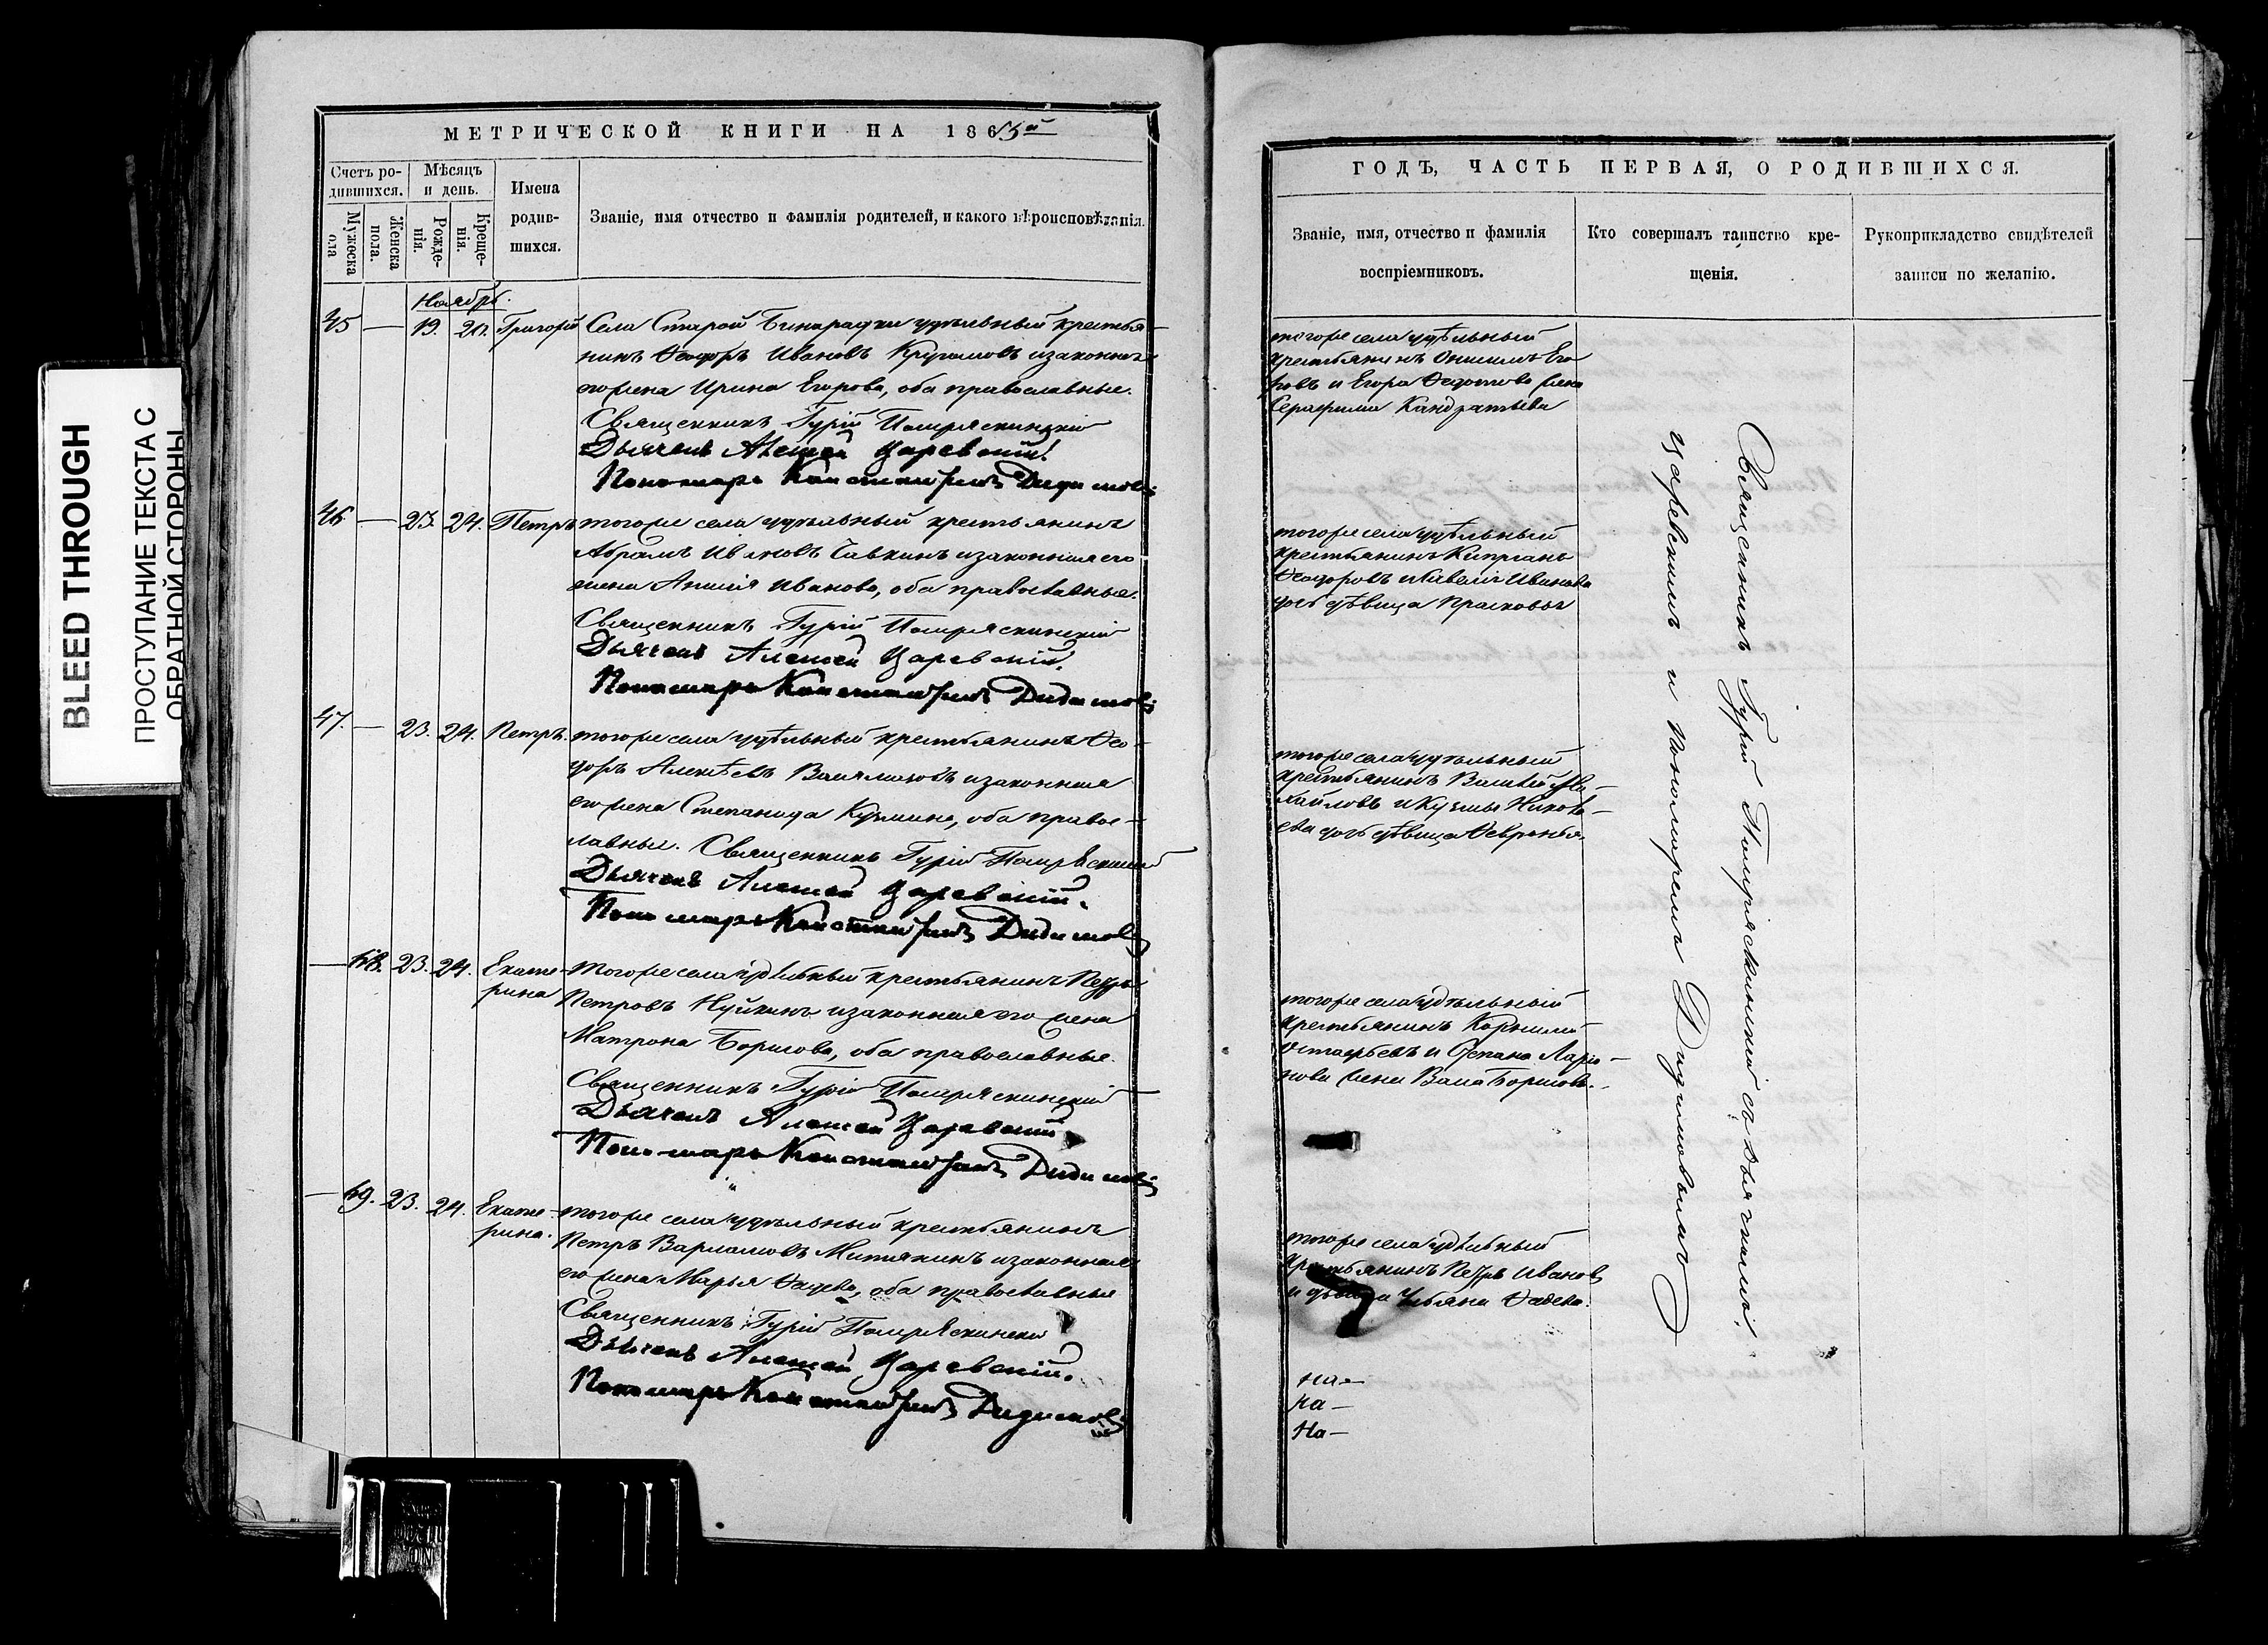 BLEED THROUGH
ПРОСТУПАНИЕ ТЕКСТА С
ОБРАТНОЙ СТОРОНЫ
МЕТРИЧЕСКОЙ КНИГИ НА 1865й
Счетъ ро-
дившихся.
Мѣсяцъ
и день.
Мужеска
Женска
пола.
Рожде-
нія.
Креще-
нія.
Имена
родив-
шихся.
Званіе, имя отчество и фамилія родителей, и какого вѣроисповѣданія.
Ноябрь.
45 — 19. 20. Григорій Села Старой Бинарадки удѣльный крестья-
нинъ Ѳеодоръ Ивановъ изаконная
егожена Ирина Егорова, оба православные.
Священникъ Гурій
Дьячекъ Алексей Царевскій.
Пономарь Константинъ Дидимовъ
46 — 23. 24. Петръ тогоже села удѣльный крестьянинъ
Абрамъ Ивановъ изаконная его
жена Иванова, оба православные.
Священникъ Гурій
Дьячекъ Алексей Царевскій.
Пономарь Константинъ Дидимовъ
47. — 23. 24. Петръ. тогоже села удѣльный крестьянинъ Ѳео-
доръ Алексѣевъ изаконная
егожена Степанида Кузмина, оба правос-
лавные. Священникъ Гурій
Дьячекъ Алексей Царевскій.
Пономарь Константинъ Дидимовъ
— 48. 23. 24. Екате-
рина
тогоже села удѣльный крестьянинъ Петръ
Петровъ Нуйкинъ изаконная его жена
Матрона Борисова, оба православные.
Священникъ Гурій
Дьячекъ Алексей Царевскій
Пономарь Константинъ Дидимовъ
— 49. 23. 24. Екате-
рина.
тогоже села удѣльный крестьянинъ
Петръ Варламовъ Митякинъ изаконная
егожена Марья оба православные
Священникъ Гурій
Дьячекъ Алексей Царевскій.
Пономарь Константинъ Дидимовъ
ГОДЪ, ЧАСТЬ ПЕРВАЯ, О РОДИВШИХСЯ.
Званіе, имя, отчество и фамилія
воспріемниковъ.
Кто совершалъ таинство кре-
щенія.
Рукоприкладство свидѣтелей
записи по желанію.
тогоже села удѣльный
крестьянинъ Онисимъ Его-
ровъ и Егора жена
Серафима Кандратьева
тогоже села удѣльный
крестьянинъ Кипріанъ
Ѳеодоровъ и Иванова
дочь дѣвица Прасковья
тогоже села удѣльный
крестьянинъ Василій Ми-
хайловъ и Кузмы
дочь дѣвица Ѳевронья.
тогоже села удѣльный
крестьянинъ Корнилій
и Степана Ларіо-
нова жена Васа Борисова.
тогоже села удѣльный
крестьянинъ Петръ Ивановъ
и дѣвица Ульяна
на—
на—
на—
Священникъ Гурій съ дьячкомъ
Царевскимъ и пономаремъ Дидимовымъ